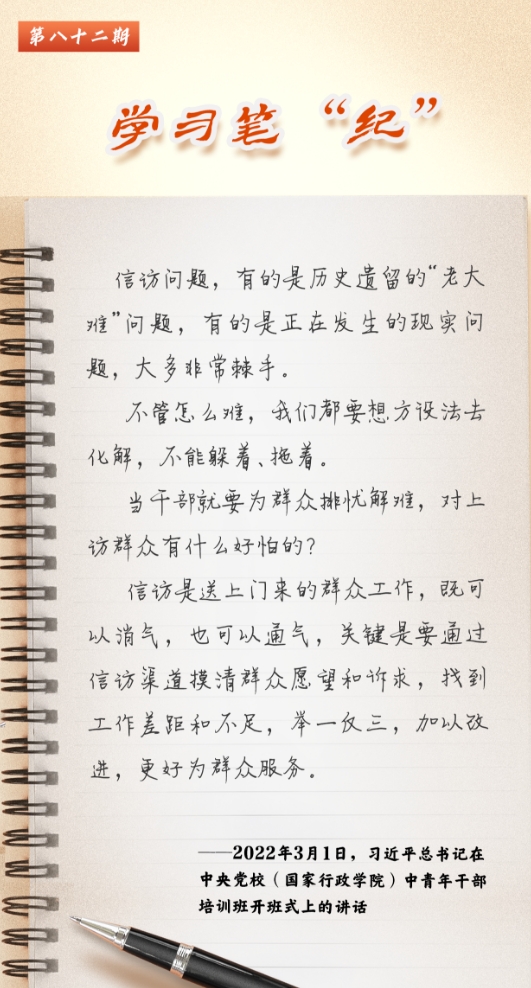 第八十二期
学习笔“纪”
信访问题，有的是历史遗留的“老大
难”问题，有的是正在发生的现实问
题，大多非常棘手。
不管怎么难，我们都要想方设法去
化解，不能躲着、拖着。
当干部就要为群众排忧解难，对上
访群众有什么好怕的？
信访是送上门来的群众工作，既可
以消气，也可以通气，关键是要通过
信访渠道摸清群众愿望和诉求，找到
工作差距和不足，举一反三，加以改
进，更好为群众服务。
——2022年3月1日，习近平总书记在
中央党校（国家行政学院）中青年干部
培训班开班式上的讲话